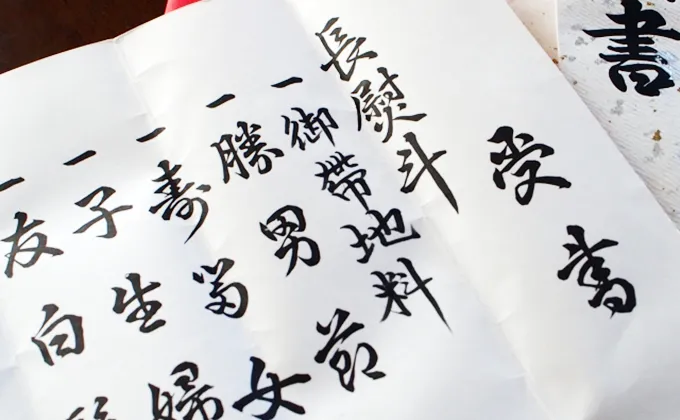 書
受書
長熨斗
一御帶地料
一勝男節
一寿留女
一子生婦
一友白